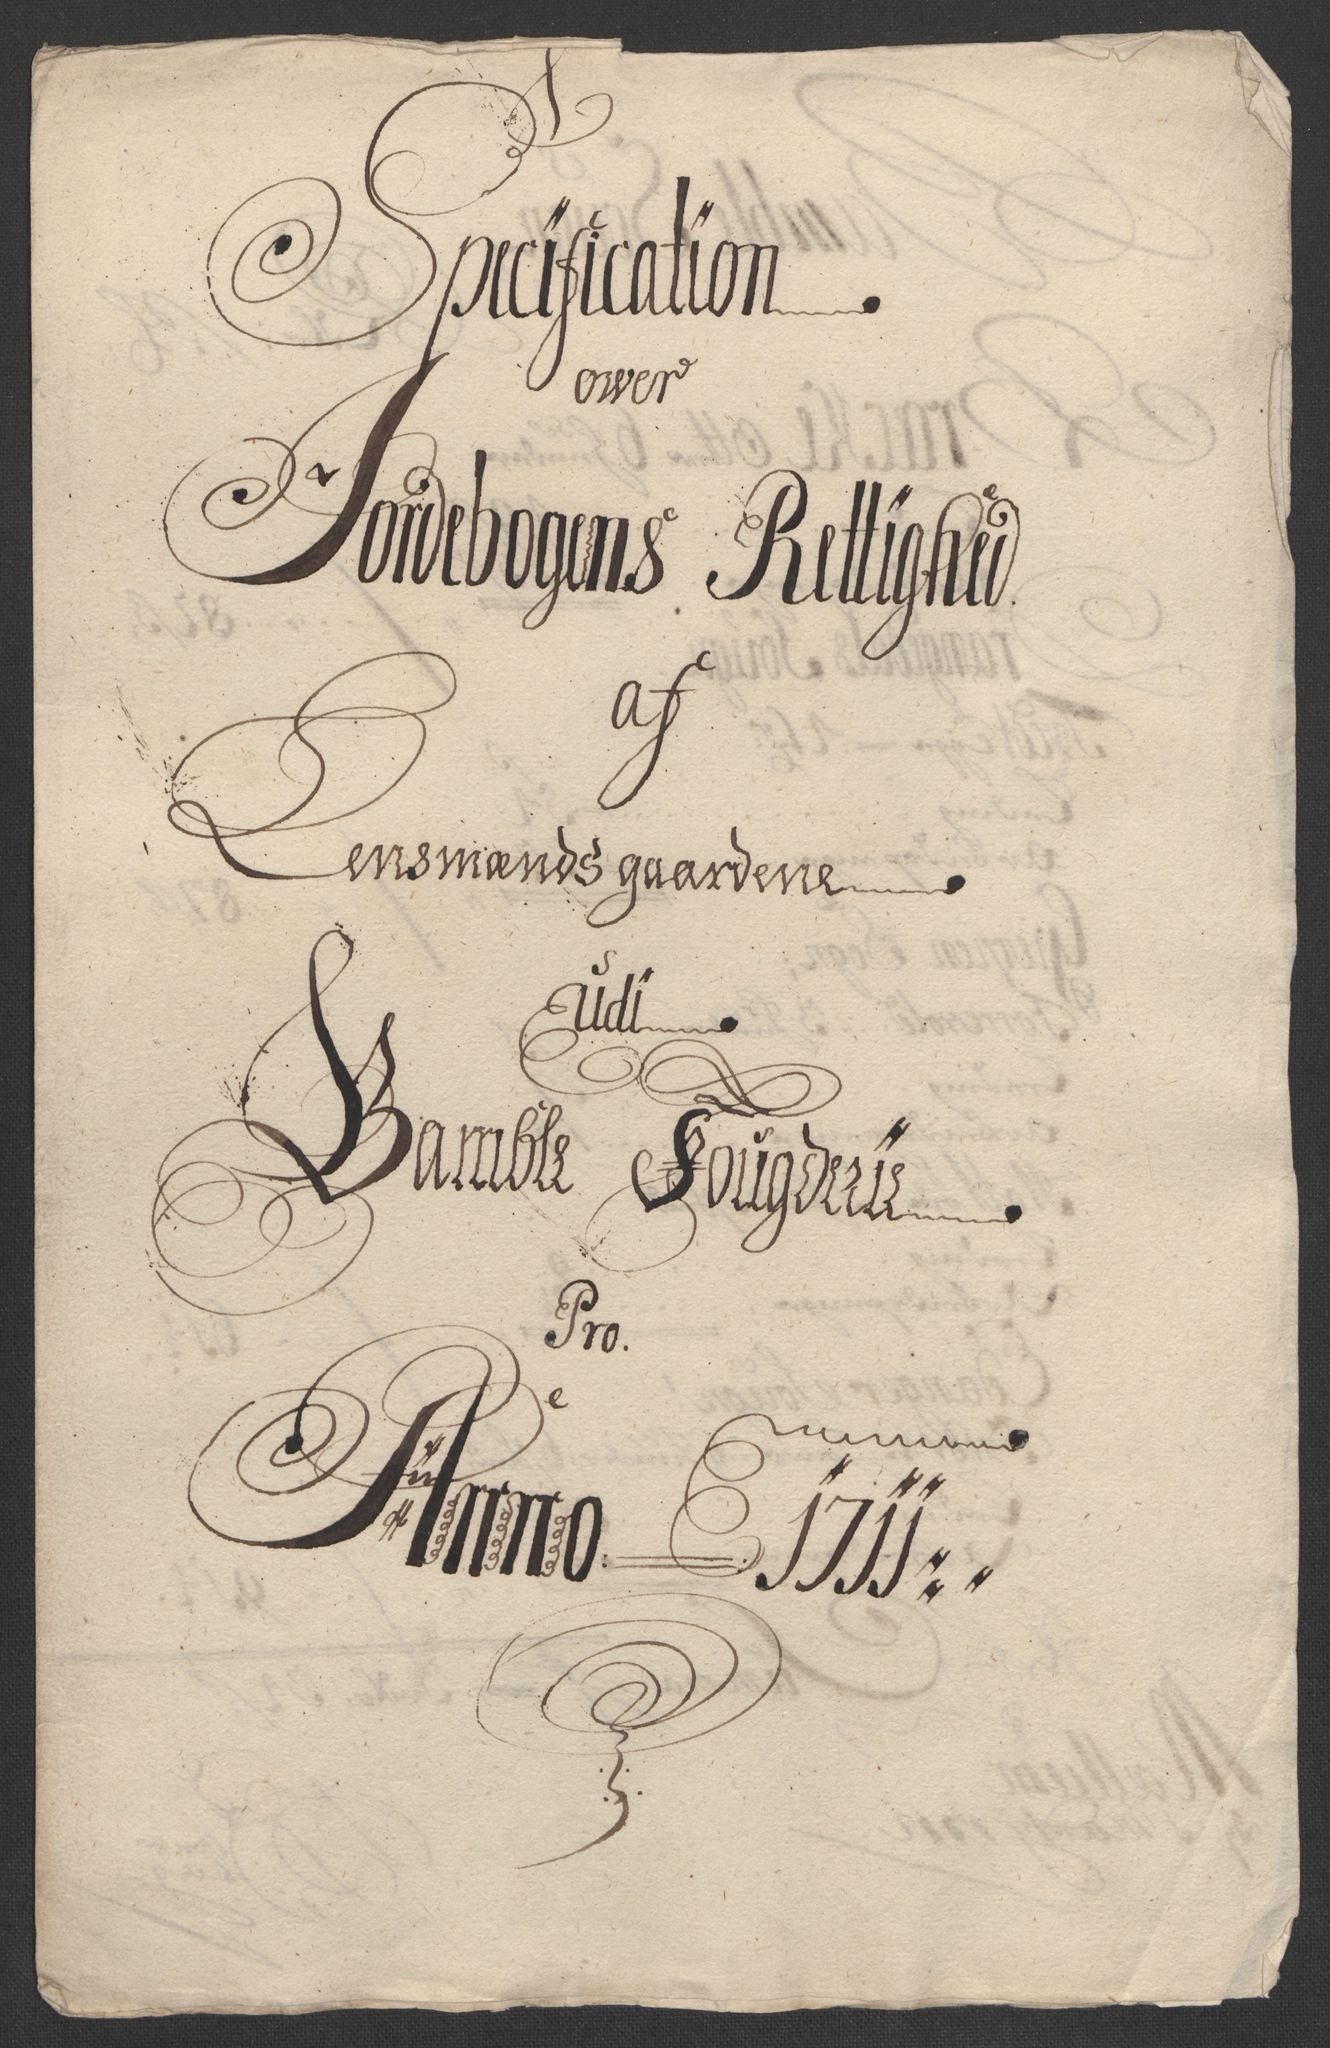 Specification
ower
Jordebogens Rettighed
af
Lensmændsgaardene
udi
Bamble Fougderie
Pro.
Anno. 1711